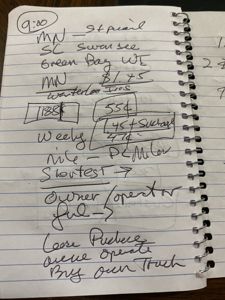 9:00
MN - St paul
SC Swansee
Green Bay WI
MN $1 + 5
Waterloo
1385 55¢
Weekly 45 + Surcharge
Mile - PC Miler
Shortest →
Owner/operator
fuel →
Lease Purchase
owner operate
Buy own Truck